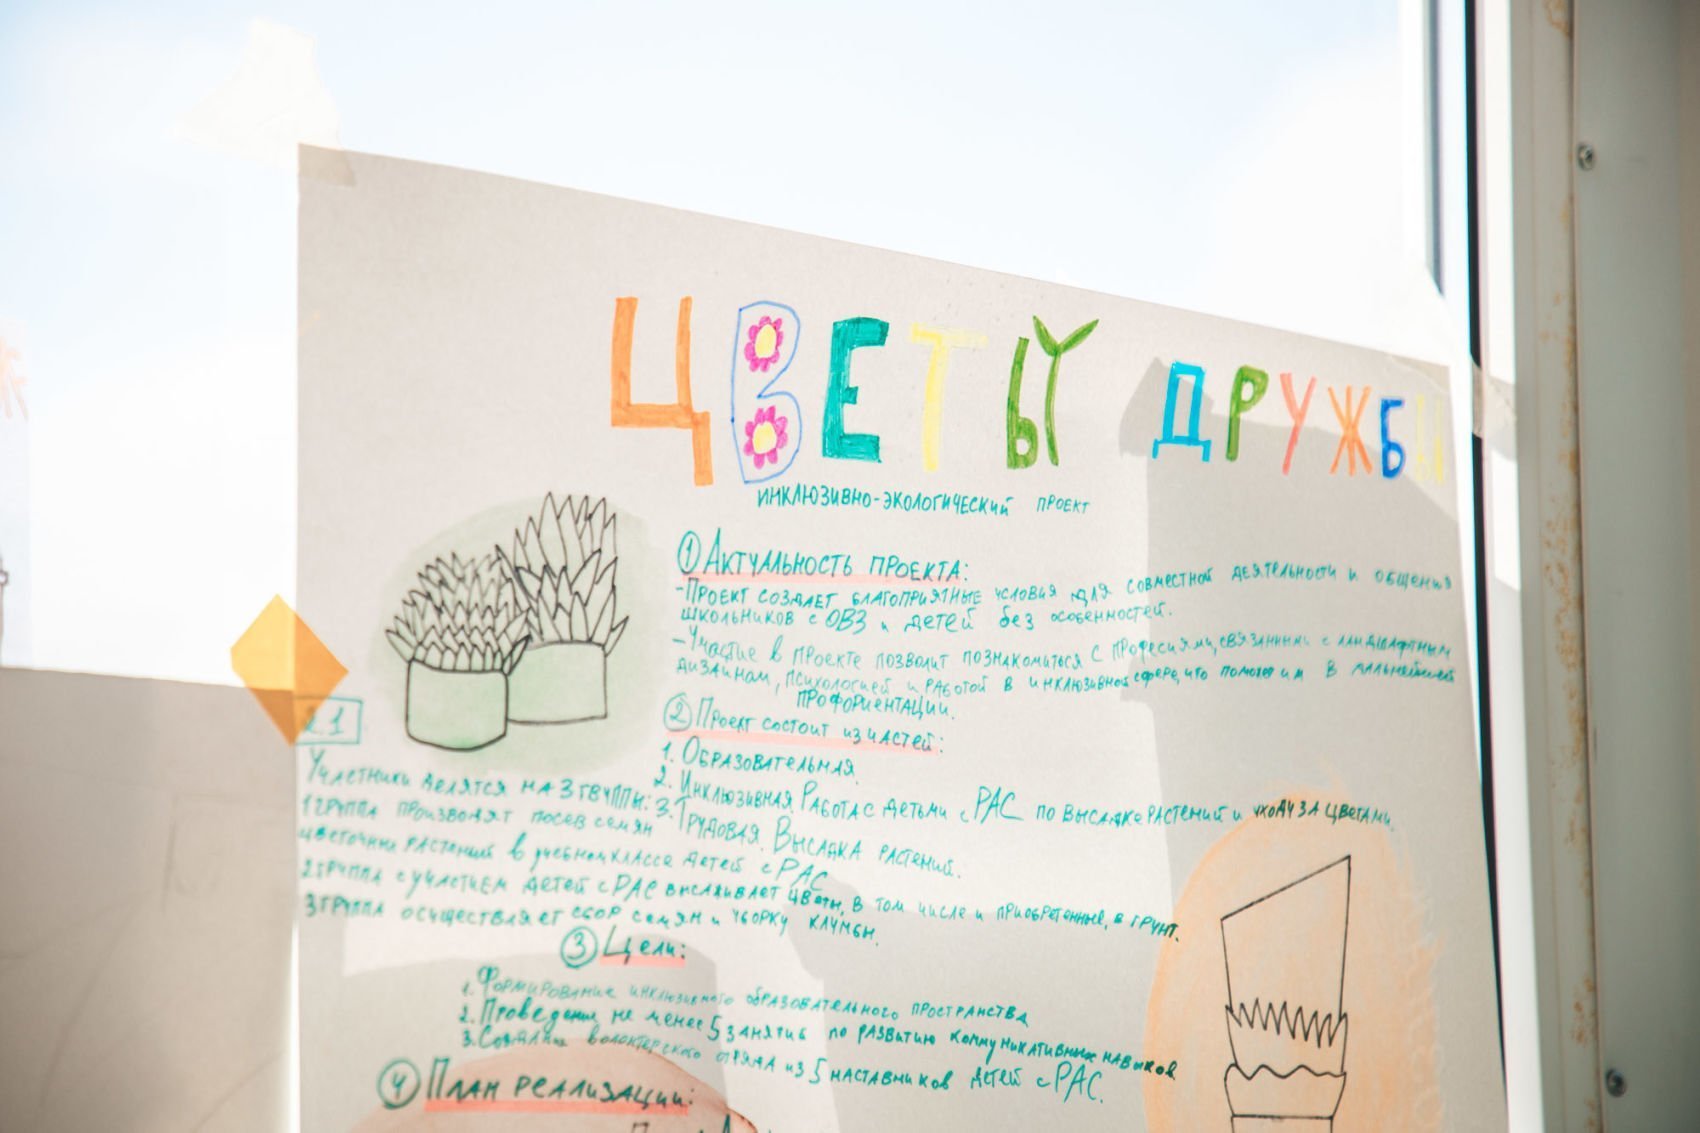 ЦВЕТЫ ДРУЖБЫ
ИНКЛЮЗИВНО-ЭКОЛОГИЧЕСКИЙ ПРОЕКТ
① АКТУАЛЬНОСТЬ ПРОЕКТА:
-ПРОЕКТ СОЗДАЕТ БЛАГОПРИЯТНЫЕ УСЛОВИЯ ДЛЯ СОВМЕСТНОЙ ДЕЯТЕЛЬНОСТИ И ОБЩЕНИЯ
ШКОЛЬНИКОВ С ОВЗ И ДЕТЕЙ БЕЗ ОСОБЕННОСТЕЙ.
-УЧАСТИЕ В ПРОЕКТЕ ПОЗВОЛИТ ПОЗНАКОМИТЬСЯ С ПРОФЕСИЯМИ, СВЯЗАННЫМИ С ЛАНДШАФТНЫМ
ДИЗАЙНОМ, ПСИХОЛОГИЕЙ И РАБОТОЙ В ИНКЛЮЗИВНОЙ СФЕРЕ, ЧТО ПОМОЖЕТ ИМ В ДАЛЬНЕЙШЕЙ
ПРОФОРИЕНТАЦИИ.
② ПРОЕКТ СОСТОИТ ИЗ ЧАСТЕЙ:
1. ОБРАЗОВАТЕЛЬНАЯ.
2. ИНКЛЮЗИВНАЯ. РАБОТА С ДЕТЬМИ С РАС ПО ВЫСАДКЕ РАСТЕНИЙ И УХОДУ ЗА ЦВЕТАМИ.
3. ТРУДОВАЯ. ВЫСАДКА РАСТЕНИЙ.
2.1
УЧАСТНИКИ ДЕЛЯТСЯ НА 3 ГРУППЫ:
1 ГРУППА ПРОИЗВОДЯТ ПОСЕВ СЕМЯН
ЦВЕТОЧНЫХ РАСТЕНИЙ В УЧЕБНОМ КЛАССЕ ДЕТЕЙ С РАС
2 ГРУППА С УЧАСТИЕМ ДЕТЕЙ С РАС ВЫСАЖИВАЕТ ЦВЕТЫ, В ТОМ ЧИСЛЕ И ПРИОБРЕТЕННЫЕ, В ГРУНТ.
3 ГРУППА ОСУЩЕСТВЛЯЕТ СБОР СЕМЯН И УБОРКУ КЛУМБЫ.
③ ЦЕЛИ:
1. ФОРМИРОВАНИЕ ИНКЛЮЗИВНОГО ОБРАЗОВАТЕЛЬНОГО ПРОСТРАНСТВА
2. ПРОВЕДЕНИЕ НЕ МЕНЕЕ 5 ЗАНЯТИЙ ПО РАЗВИТИЮ КОММУНИКАТИВНЫХ НАВЫКОВ
3. СОЗДАНИЕ ВОЛОНТЕРСКОГО ОТРЯДА ИЗ 5 НАСТАВНИКОВ ДЕТЕЙ С РАС.
④ ПЛАН РЕАЛИЗАЦИИ: